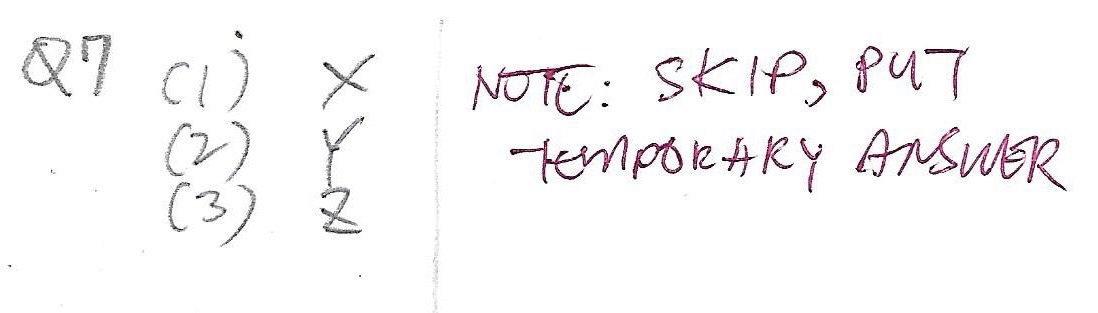 Q7 (1) X
(2) Y
(3) Z
NOTE: SKIP, PUT
TEMPORARY ANSWER